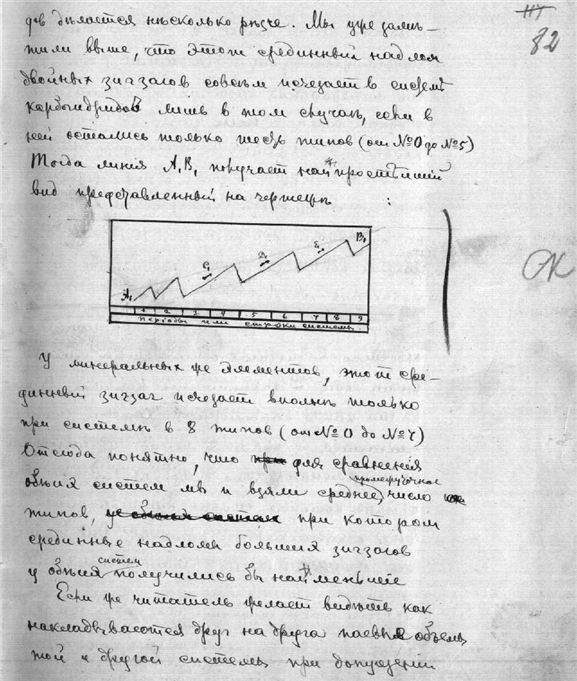 82
дѣ дѣлается нѣсколько рѣзче. Мы уже замѣ-
тили выше, что этотъ срединный надлом
двойных зигзагов совсѣм исчезает в систем
карбогидридов лишь в том случаѣ, если в
ней остались только шесть типов (от № 0 до № 5)
Тогда линія A₁B₁ получает наипростѣйшій
вид представленный на чертежѣ :
B₁
A₁
1 2 3 4 5 6 7 8 9
періоды или строки системы
У минеральных же элементов, этот сре-
динный зигзаг исчезает вполнѣ только
при системѣ в 8 типов (от № 0 до № 7)
Отсюда понятно, что для сравненія
обѣих систем мы и взяли среднее промежуточное число
типов, при котором
срединные надломы больших зигзагов
у обѣих систем получились бы наименьшіе
Если же читатель желает видѣть как
накладываются друг на друга паевые объемы
той и другой системы при допущеніи